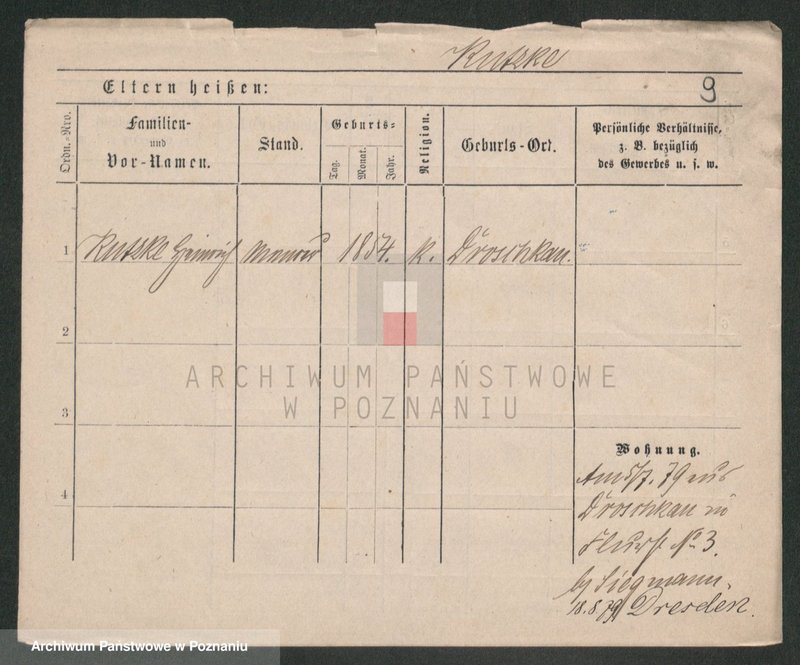 Kutzke
Eltern heißen:
9
Ordn.-Nro.
Familien-
und
Vor-Namen.
Stand.
Geburts-
Tag.
Monat.
Jahr.
Religion.
Geburts-Ort.
Persönliche Verhältnisse,
z. B. bezüglich
des Gewerbes u. s. w.
1 Kutzke Heinrich Maurer 1854. k. Droschkau.
2
3
4
ARCHIWUM PAŃSTWOWE
W POZNANIU
Wohnung.
Am 5/7. 79 aus
Droschkau in
No 3.
by Siegmann.
18.8.79 Dresden.
Archiwum Państwowe w Poznaniu